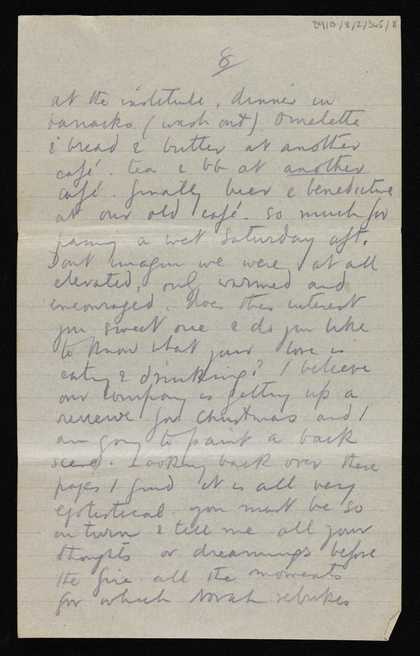 8
at the institute, dinner in
barracks (wash out) Omelette
& bread & butter at another
café. tea & bb at another
café. finally beer & benedictine
at our old café. So much for
passing a wet Saturday aft.
Dont imagine we were at all
elevated, only warmed and
encouraged. Does this interest
you sweet one & do you like
to know what your love is
eating & drinking? I believe
our company is getting up a
review for Christmas and I
am going to paint a back
scene. Looking back over these
pages I find it is all very
egotistical. you must be so
in turn & tell me all your
thoughts or dreamings before
the fire all the moments
for which Norah rebukes